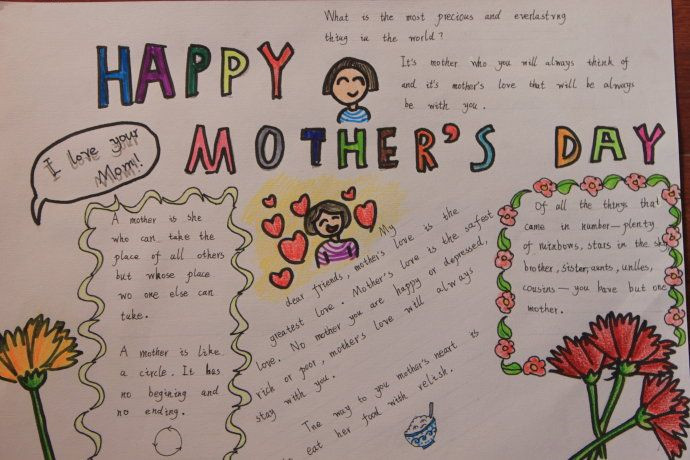 What is the most precious and everlastvng
thing in the world?
It's mother who you will always think of
and it's mother's love that will be always
be with you.
HAPPY
MOTHER'S DAY
I love your
Mom!
A mother is she
who can take the
place of all others
but whose place
wo one else can
take.
A mother is like
a circle. It has
no begining and
no ending.
My
dear friends, mother's love is the
greatest love. Mother's love is the safest
love. No mother you are happy or depressed,
rich or poor, mother's love will always
stay with you.
The way to you mother's heart is
eat her food with relish.
Of all the things that
came in number—plenty
of rainbows, stars in the sky
brother, sister, aunts, unlles,
cousins—you have but one
mother.